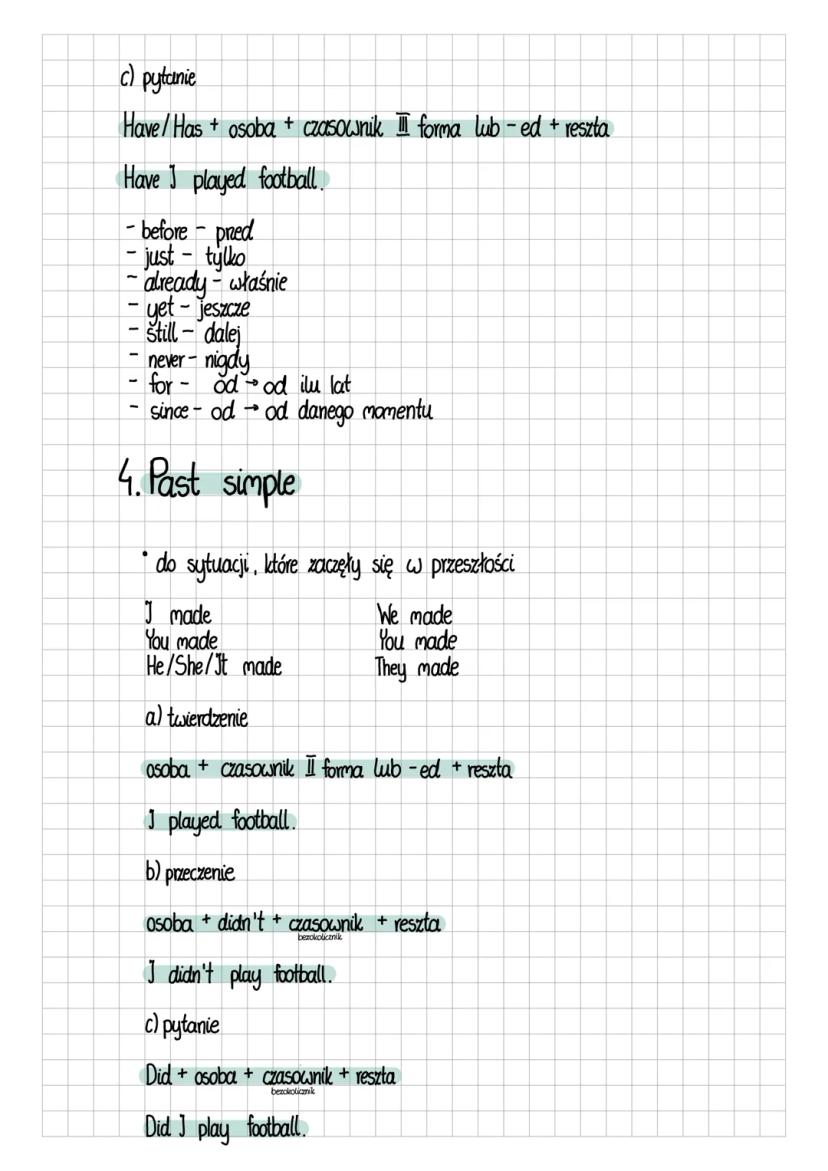 c) pytanie
Have/Has + osoba + czasownik III forma lub -ed + reszta
Have I played football.
- before - przed
- just - tylko
- already - właśnie
- yet - jeszcze
- still - dalej
- never - nigdy
- for - od → od ilu lat
- since - od → od danego momentu
4. Past simple
• do sytuacji, które zaczęły się w przeszłości
I made We made
You made You made
He/She/It made They made
a) twierdzenie
osoba + czasownik II forma lub -ed + reszta
I played football.
b) przeczenie
osoba + didn't + czasownik + reszta
bezokolicznik
I didn't play football.
c) pytanie
Did + osoba + czasownik + reszta
bezokolicznik
Did I play football.